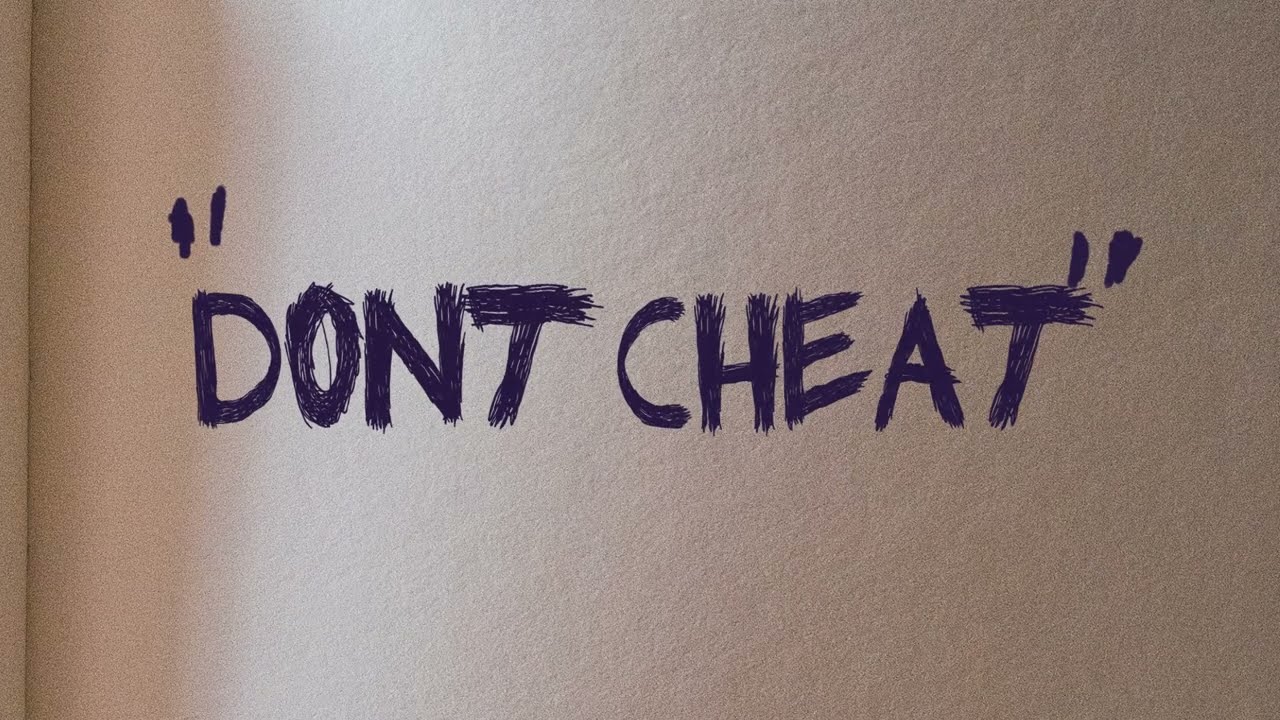 "DONT CHEAT"